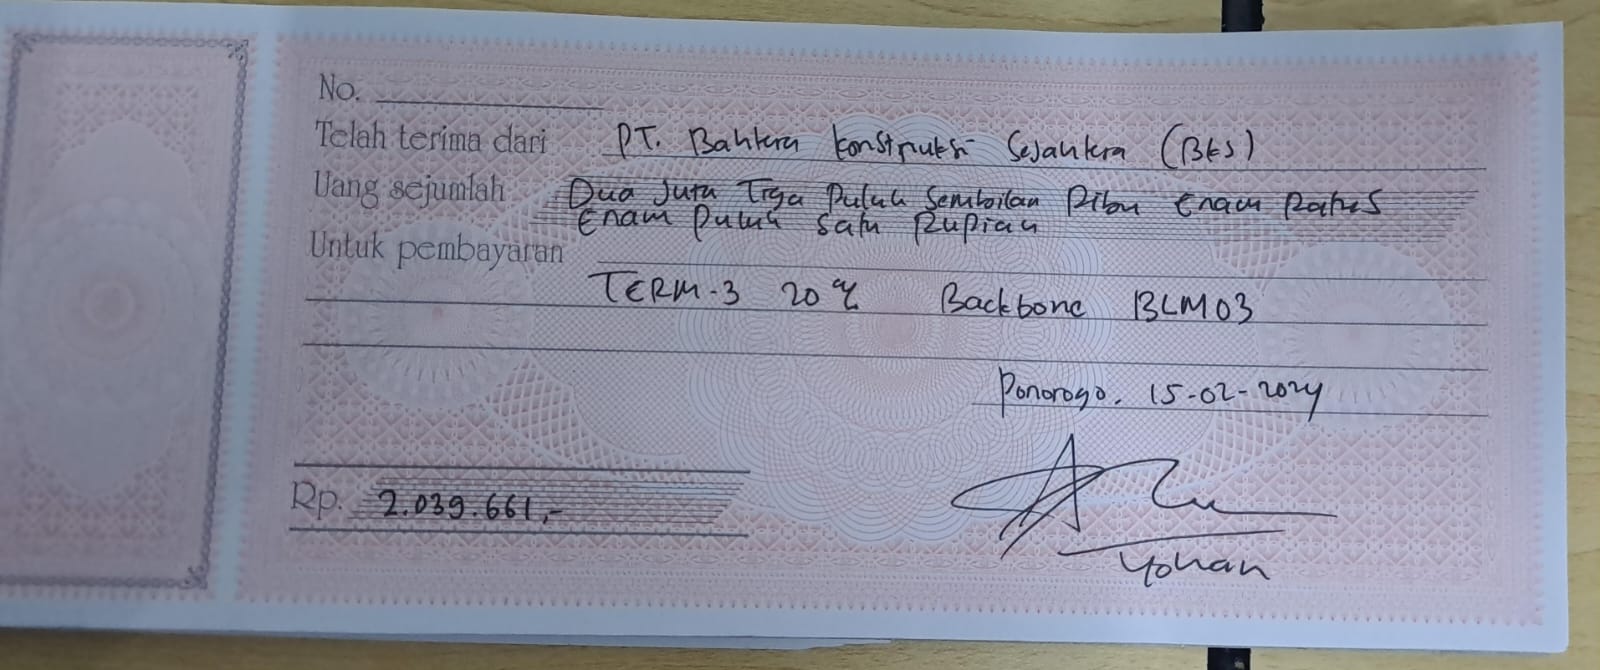 No.
Telah terima dari PT. Bahtera Konstruksi Sejahtera (BKS)
Uang sejumlah Dua Juta Tiga Puluh Sembilan Ribu Enam Ratus
Enam Puluh Satu Rupiah
Untuk pembayaran
TERM-3 20% Backbone BLM03
Ponorogo. 15-02-2024
Rp. 2.039.661,-
Yohan